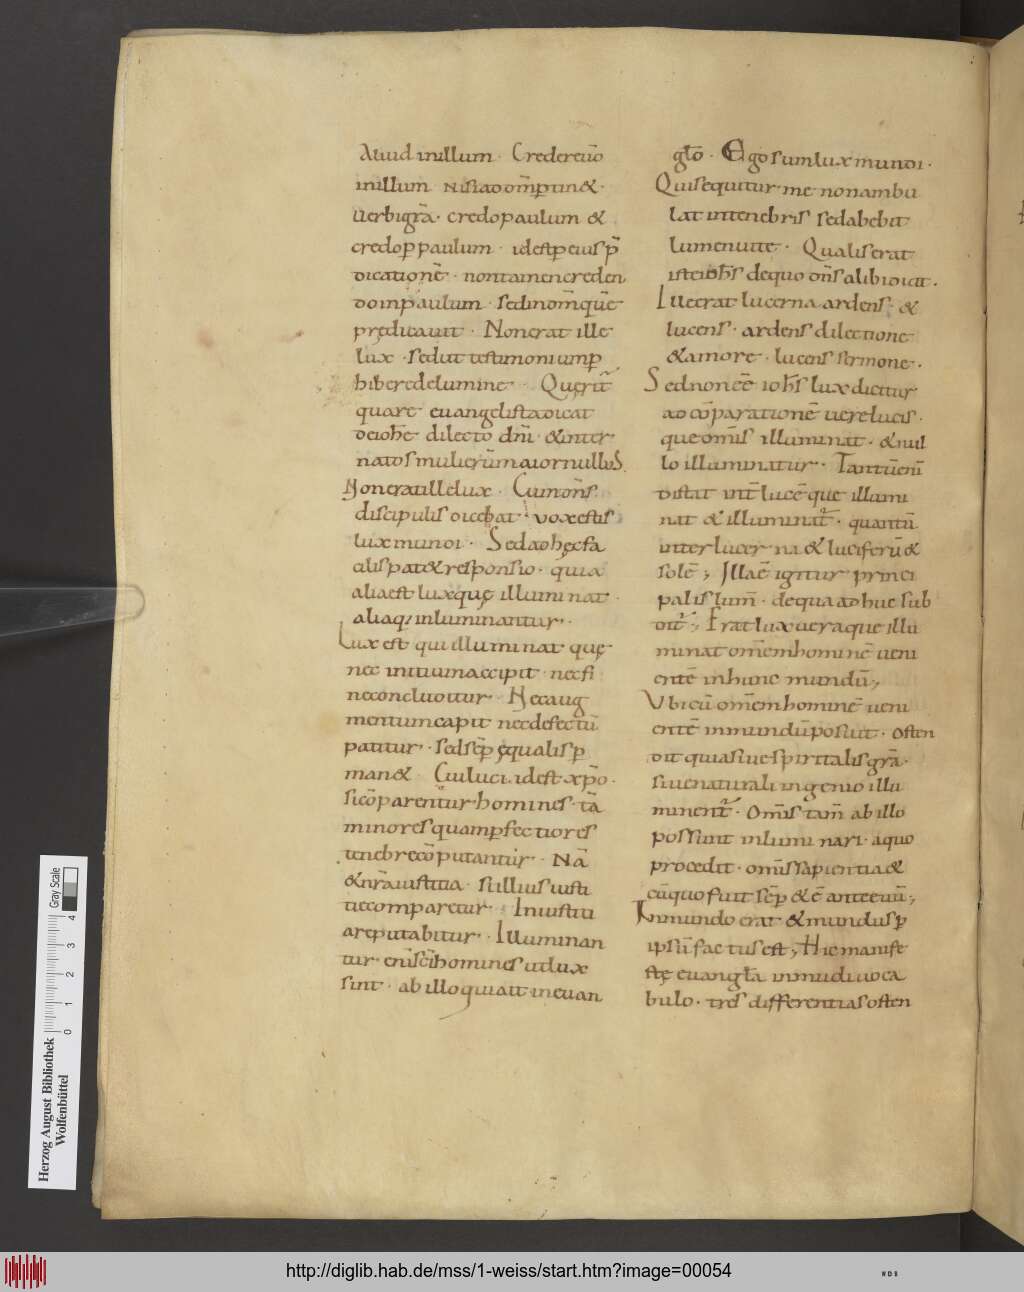 Aliud inillum · Crederevo
inillum nisi ad om̄ p̱tinet ·
uerbi gr̄a · credo paulum et
credo p̱ paulum · idest p̱ eius p̄
dicationē · non tamen creden
do in paulum · sed in om̄ quē
prędicauit · Non erat ille
lux · sed ut testimonium p̱
hiberet de lumine · Querit̃
quare euangelista dicat
de ioh̄e dilecto dn̄i · et inter
natos mulierū maior nullus
Non erat ille lux · Cum oms̄
discipulis dicebat · vox estis
lux mundi · Sed ad hęc fa
cilis patet responsio · quia
alia est lux quę illuminat ·
alia q; inluminantur ·
Lux est qui illuminat quę
nec initium accipit · nec fi
ne concluditur · Nec aug
mentum capit nec defectū
patitur · sed sēp ęqualis p̱
manet · Cui luci · idest xp̄o ·
si cōparentur homines · tā
minores quam p̱fectiores
tenebre cōputantur · Nā
et nr̄a iustitia · si illius iusti
tie comparetur · Iniustiti
a reputabitur · Illuminan
tur enī sci homines ut lux
sint · ab illo qui ait in euan
gl̄o · Ego sum lux mundi ·
Qui sequitur me non ambu
lat in tenebris sed habebit
lumen uite · Qualis erat
iste ioh̄s de quo om̄s alibi dicit ·
Ille erat lucerna ardens · et
lucens · ardens dilectione
et amore · lucens sermone ·
Sed non eē ioh̄s lux dicitur
ad cōparationē uere lucis ·
que om̄is illuminat · et nul
lo illuminatur · Tantū enī
distat int̄ lucē que illumi
nat et illuminat̃ · quantū
inter lucernā et luciferū et
solē ; Illa ē igitur princi
palis lum̄ · de qua adhuc sub
dit̃ ; Erat lux uera que illu
minat om̄em hominē ueni
entē in hunc mundū ;
Vbi cū om̄em hominē ueni
entē in mundū posuit · osten
dit quia siue spiritalis gr̄a ·
siue naturali ingenio illu
minent̃ · Om̄is tam̄ ab illo
possunt inluminari · a quo
procedit · om̄is sapientia et
cū quo fuit sēp et ē ante euū ;
In mundo erat et mundus p̱
ipsū factus est ; Hic manife
stę euangl̄a in mudi uoca
bulo · tres differentias osten
Herzog August Bibliothek
Wolfenbüttel
0 1 2 3 4
Gray Scale
http://diglib.hab.de/mss/1-weiss/start.htm?image=00054